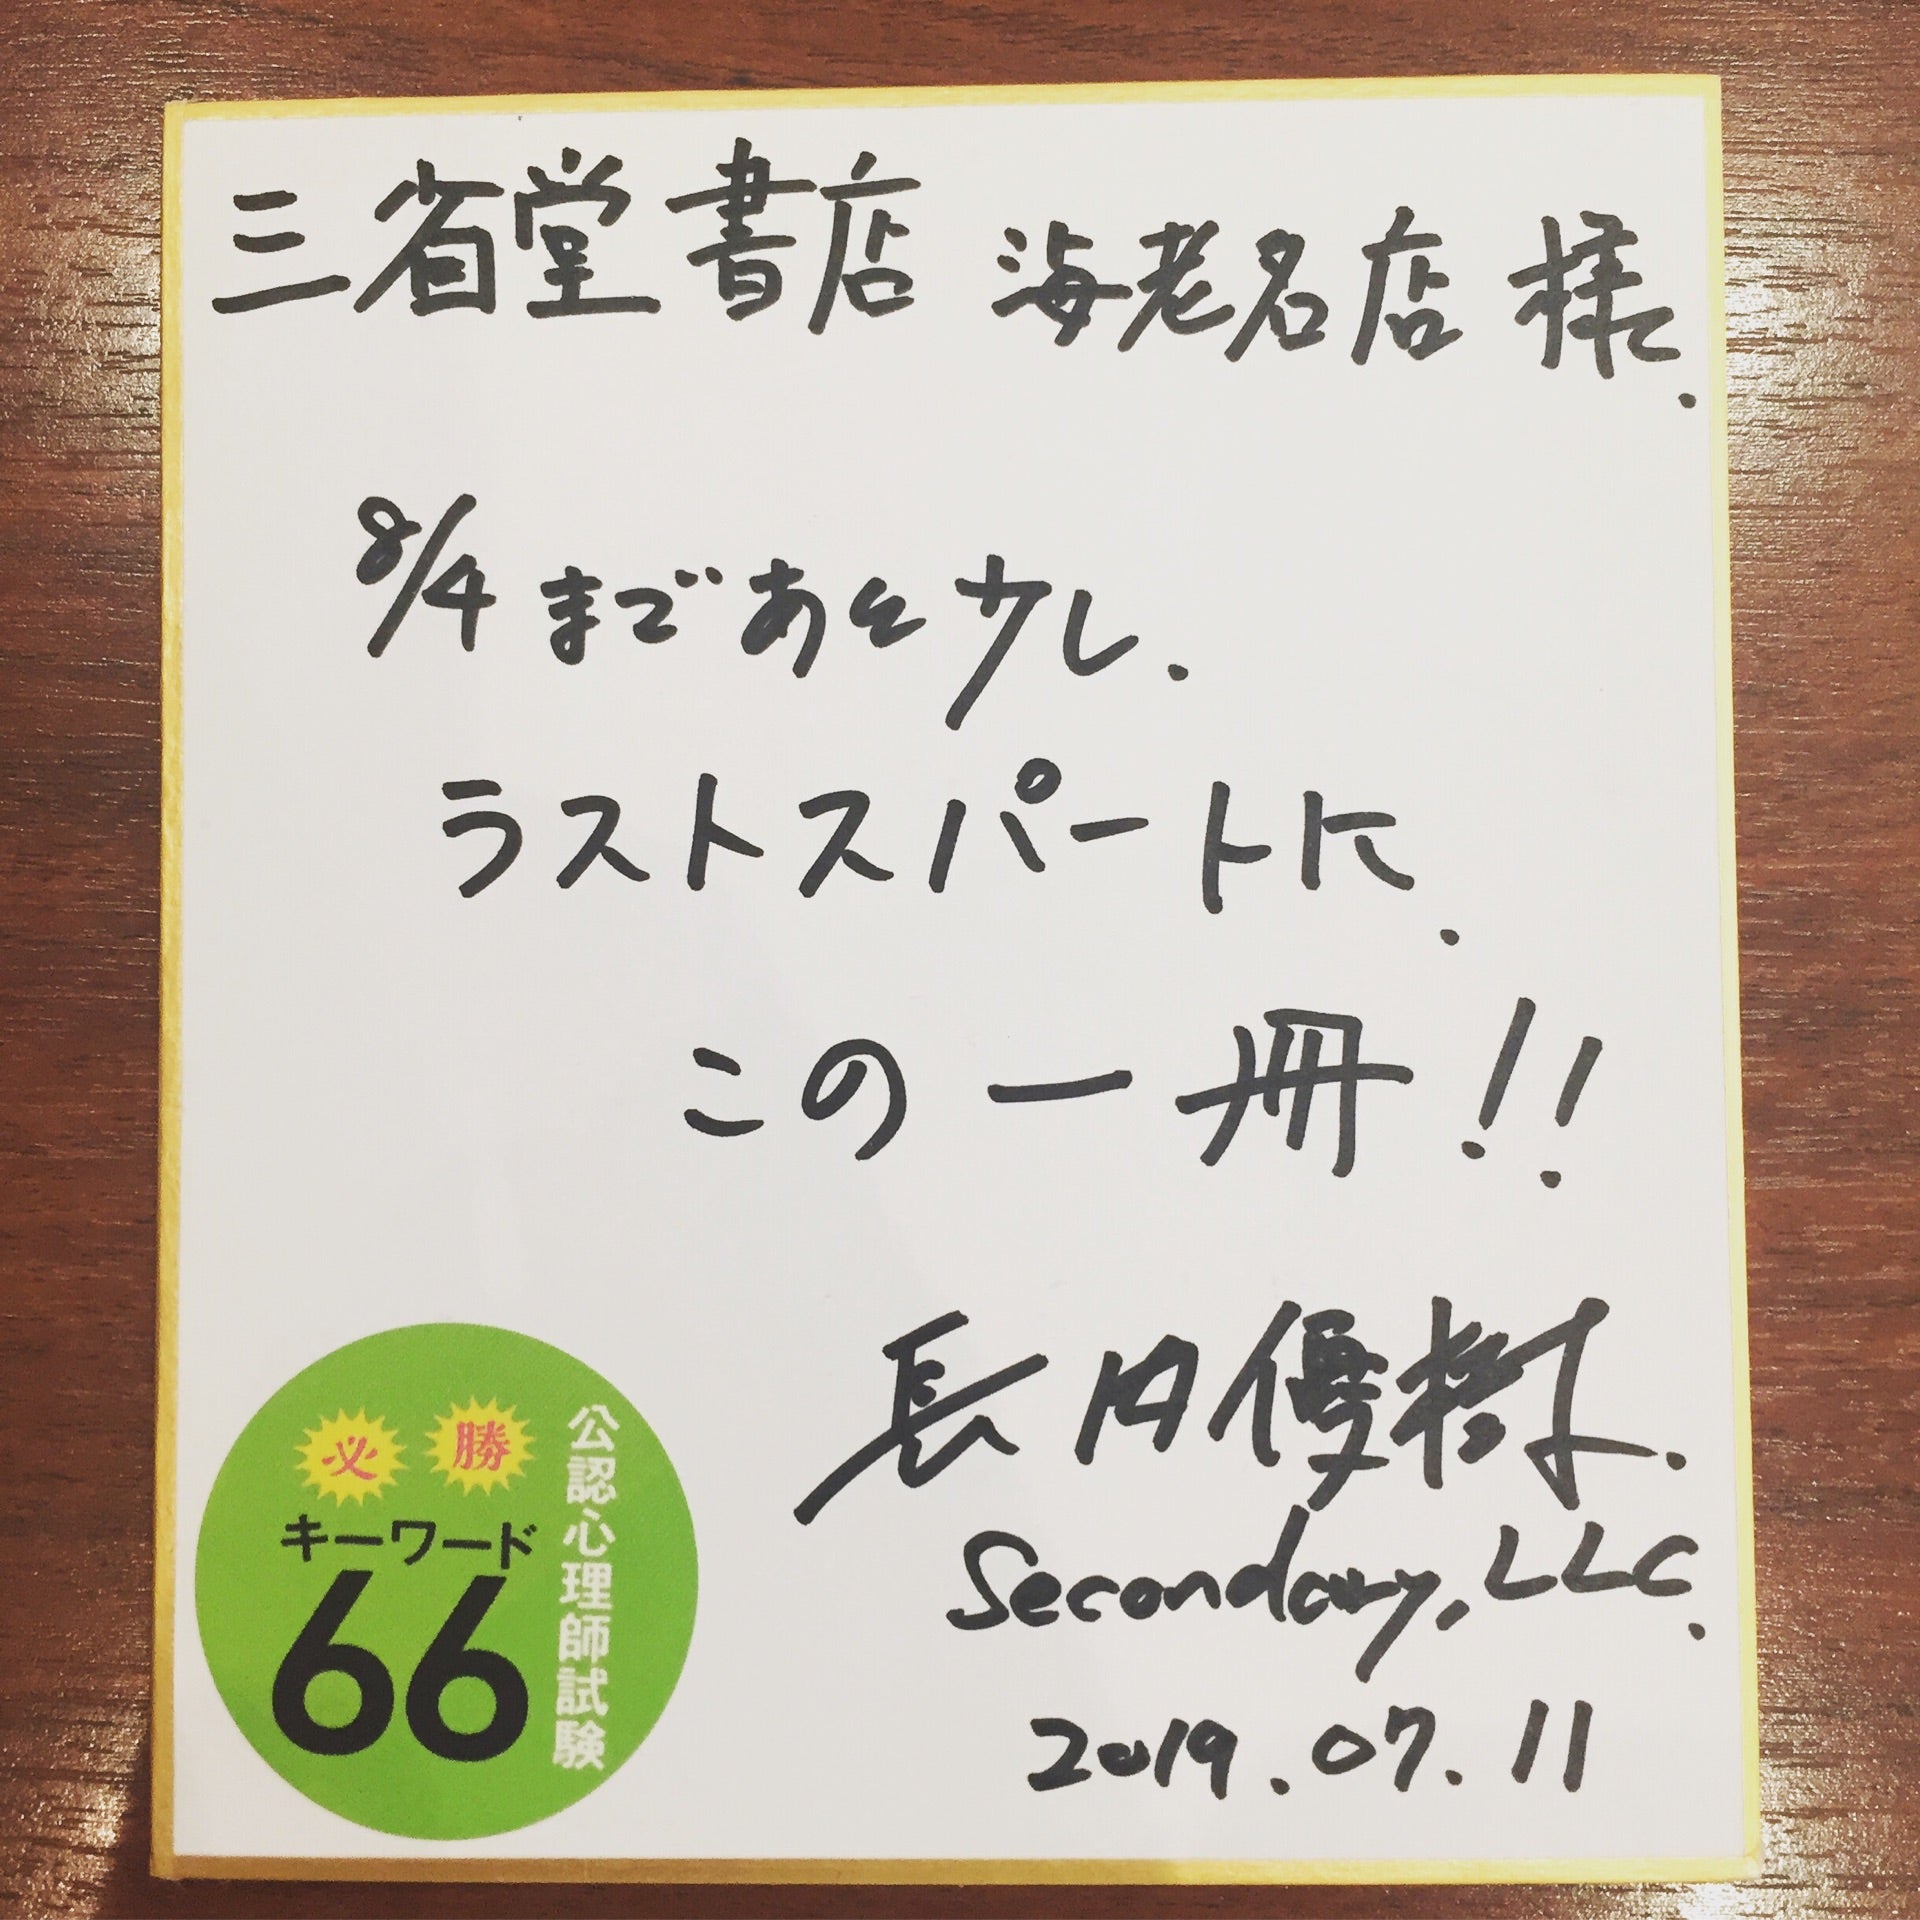 三省堂書店 海老名店 様.
8/4 まであと少し.
ラストスパートに.
この一冊!!
長内優樹.
Secondary, LLC.
2019.07.11
公認心理師試験
必勝
キーワード
66